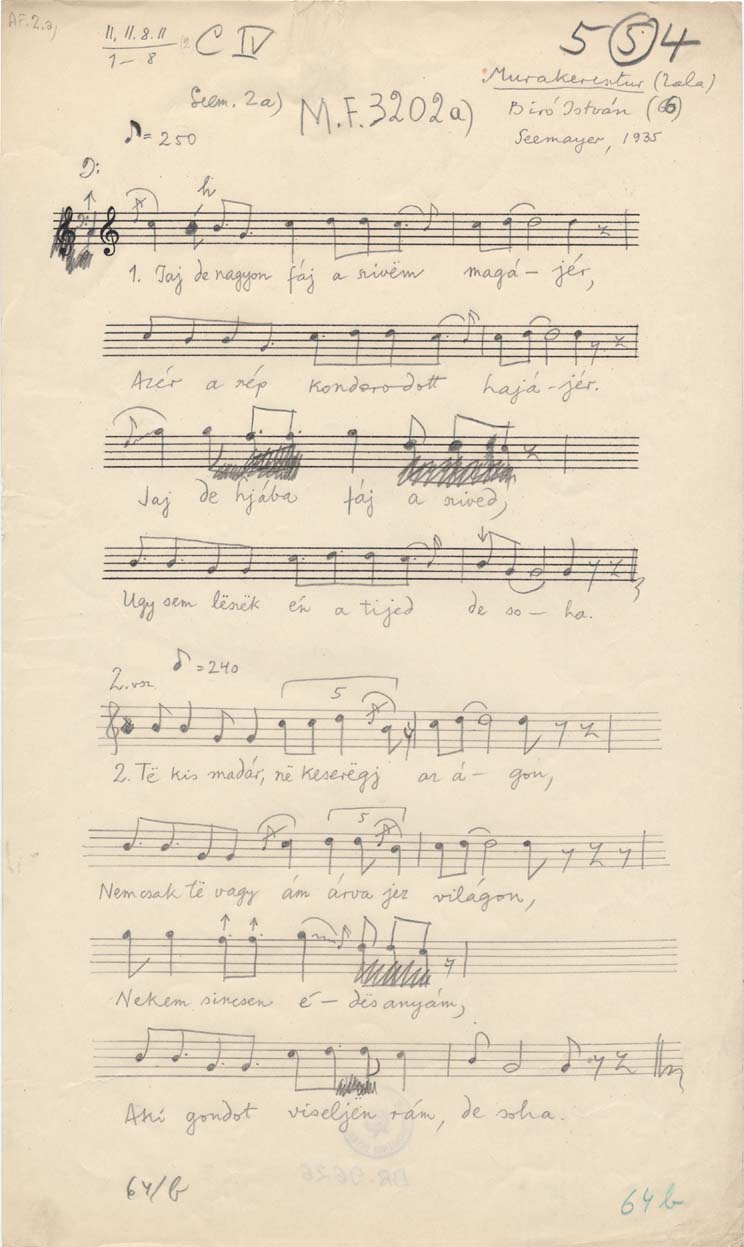 AF.2.a)
II, II.8.II
1–8
C IV
5 5 4
Murakeresztur (Zala)
Seem. 2a)
M.F.3202a)
Biró István (66)
♪=250
Seemayer, 1935
1. Jaj de nagyon fáj a szivëm magá–jér,
Azér a szép kondorodott hajá–jér.
Jaj de hjába fáj a szived,
Ugy sem lëszëk én a tijed de so–ha.
2. vsz.
♪=240
5
2. Të kis madár, në keserëgj az á–gon,
5
Nemcsak të vagy ám árva jez világon,
Nekem sincsen é–dës anyám,
Aki gondot viseljën rám, de soha.
BR. 9626
64/b
64 b